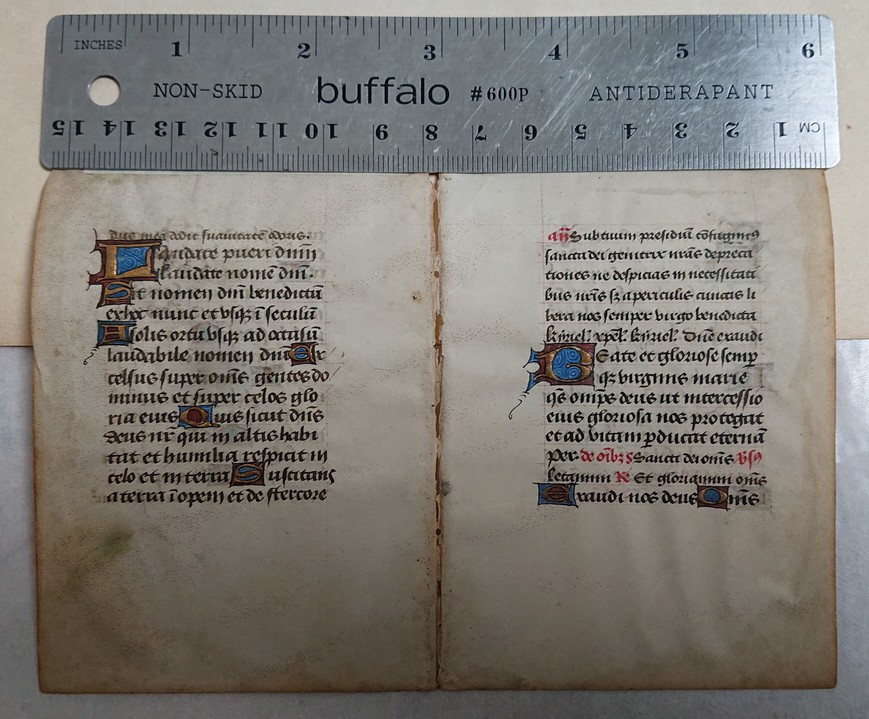 INCHES 1 2 3 4 5 6
NON-SKID buffalo #600P ANTIDERAPANT
15 14 13 12 11 10 9 8 7 6 5 4 3 2 1 CM
dus mea dedit suauitatē odoris.
Laudate pueri dn̄m
laudate nomē dn̄i.
Sit nomen dn̄i benedictū
ex hoc nunc et vsqꝫ ī seculū
A solis ortu vsqꝫ ad occasū
laudabile nomen dn̄i Ex
celsus super om̄s gentes do
minus et super celos glo
ria eius Quis sicut dn̄s
deus nr̄ qui in altis habi
tat et humilia respicit in
celo et in terra Suscitans
a terra īopem et de stercore
añ Sub tuum presidiū cōfugimꝯ
sancta dei genitrix nr̄as depreca
tiones ne despicias in necessitati
bus nr̄is sꝫ a periculis cunctis li
bera nos semper virgo benedicta
kyriel. xpēl. kyriel. Dn̄e exaudi
Beate et gloriose semꝑ
qꝫ virginis marie
qs̄ omp̄s deus ut intercessio
eius gloriosa nos protegat
et ad vitam ꝑducat eternā
Per de oībꝫ s Sancti dei om̄s vsꝯ
letamini Re Et gloriamini om̄s
Exaudi nos deus Om̄s